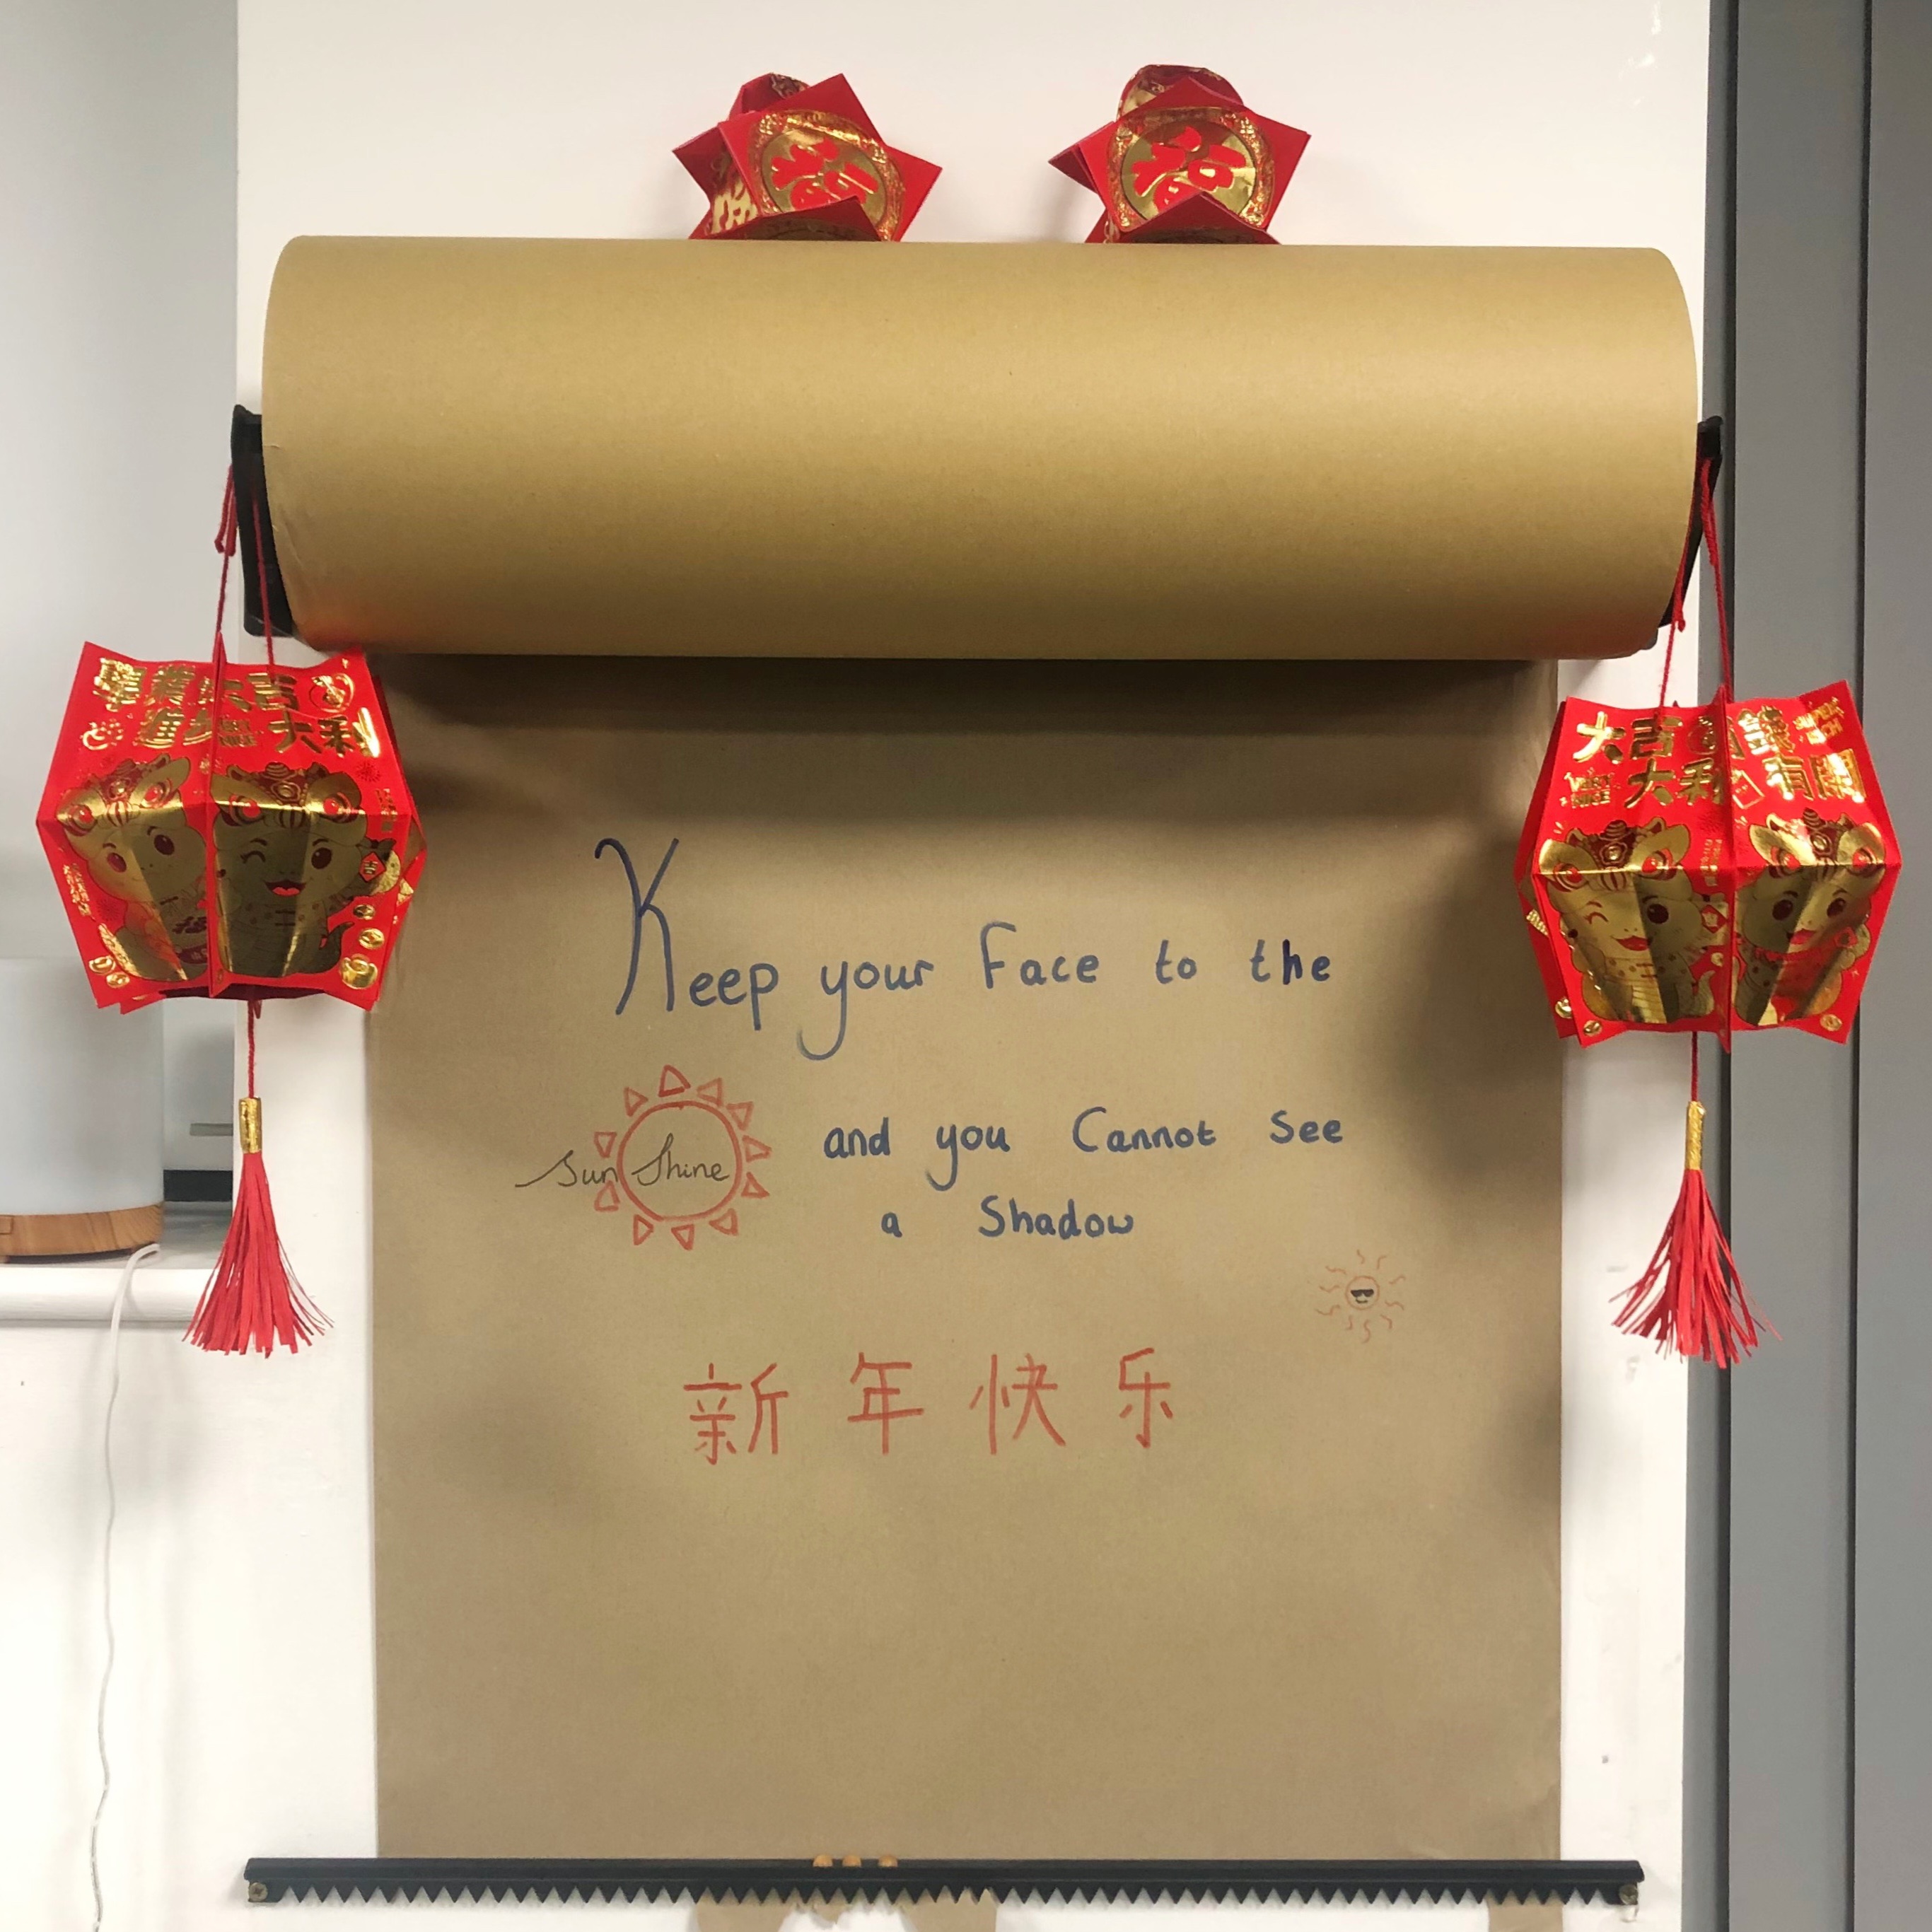 福
福
學業 大吉
進步 大利
大吉
大利 有閑
Keep your Face to the
Sun Shine and you Cannot See
a Shadow
新年快乐